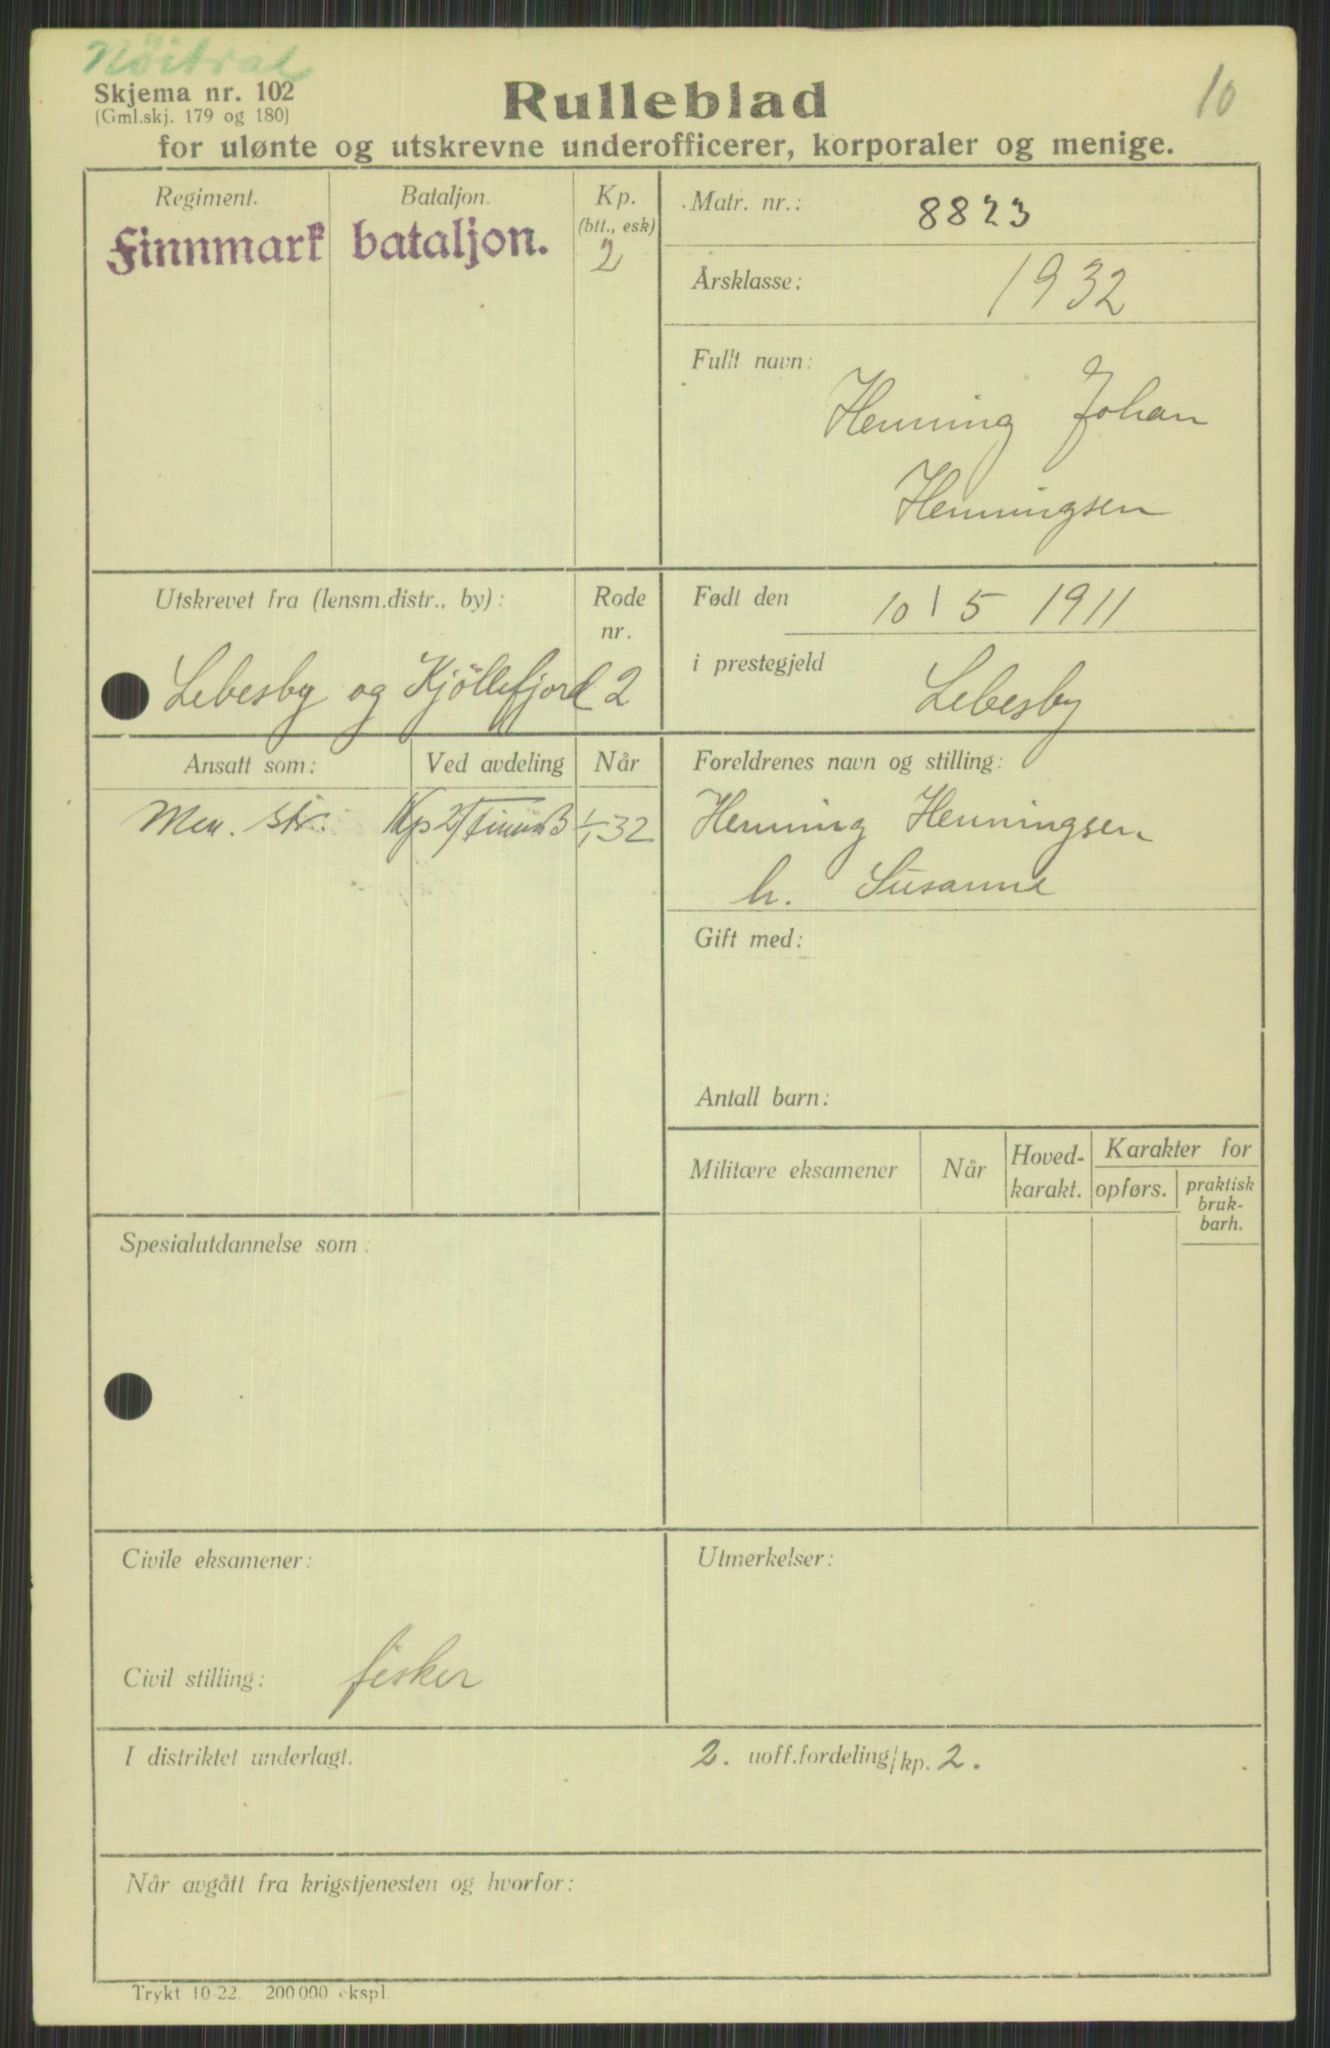 Nöitral
10
Skjema nr. 102
(Gml.skj. 179 og 180)
Rulleblad
for ulønte og utskrevne underofficerer, korporaler og menige.
Regiment. Bataljon. Kp.
(btt., esk)
Finnmark bataljon. 2
Matr. nr.: 8823
Årsklasse: 1932
Fullt navn:
Henning Johan
Henningsen
Utskrevet fra (lensm.distr., by): Rode
nr.
Lebesby og Kjöllefjord 2
Født den 10 / 5 1911
i prestegjeld Lebesby
Ansatt som: Ved avdeling Når
Men. str. Kp 2/FinnB 1/1 32
Foreldrenes navn og stilling:
Henning Henningsen
h. Susanna
Gift med:
Antall barn:
Militære eksamener Når Hoved-
karakt. Karakter for
opførs. praktisk
bruk-
barh.
Spesialutdannelse som:
Civile eksamener:
Civil stilling: fisker
Utmerkelser:
I distriktet underlagt. 2. uoff.fordeling/kp. 2.
Når avgått fra krigstjenesten og hvorfor:
Trykt 10-22. 200 000 ekspl.